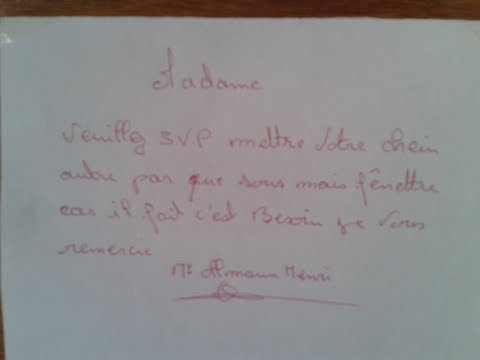 Madame
Veuillez S.V.P mettre Votre chein
autre par que sous mais fênettre
car il fait c'est Besoin je Vous
remercie
Mr Almann Henri